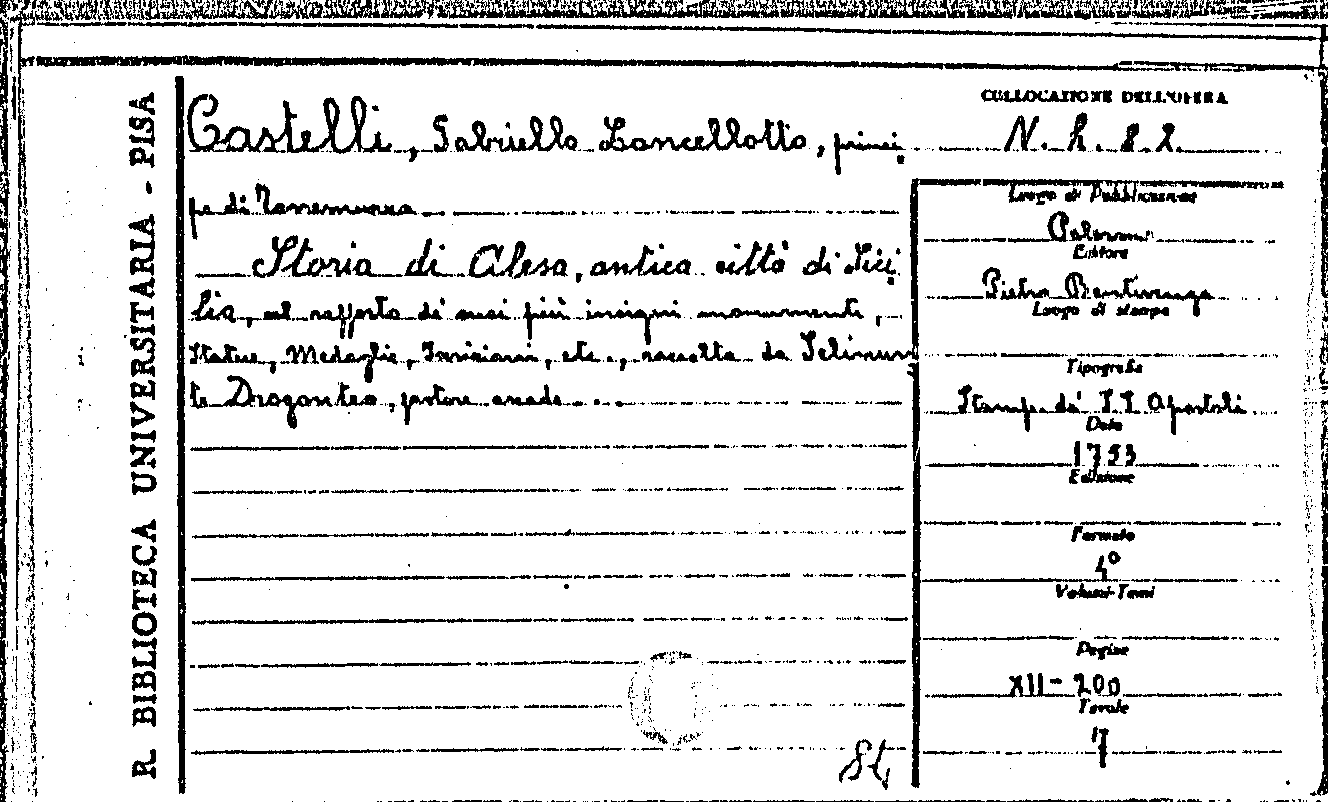 R. BIBLIOTECA UNIVERSITARIA - PISA
Castelli, Gabriello Lancellotto, princi
pe di Torremuzza
Storia di Alesa, antica città di Sici
lia, col rapporto de' suoi più insigni monumenti,
Statue, Medaglie, Inscrizioni, etc., raccolta da Selinun
te Drogonteo, pastore arcade...
COLLOCAZIONE DELL'OPERA
N. h. 8. 2.
Luogo di Pubblicazione
Palermo
Editore
Pietro Bentivenga
Luogo di stampa
Tipografia
Stamp. de' SS Apostoli
Data
1753
Edizione
Formato
4º
Volumi-Tomi
Pagine
XII-200
Tavole